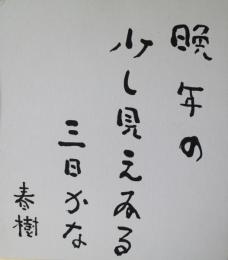 晩年の
少し見えゐる
三日かな
春樹